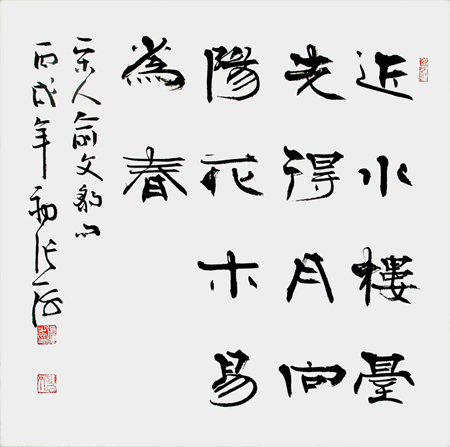 近水樓臺
先得月向
陽花木易
為春
宋人俞文豹句
丙戌年